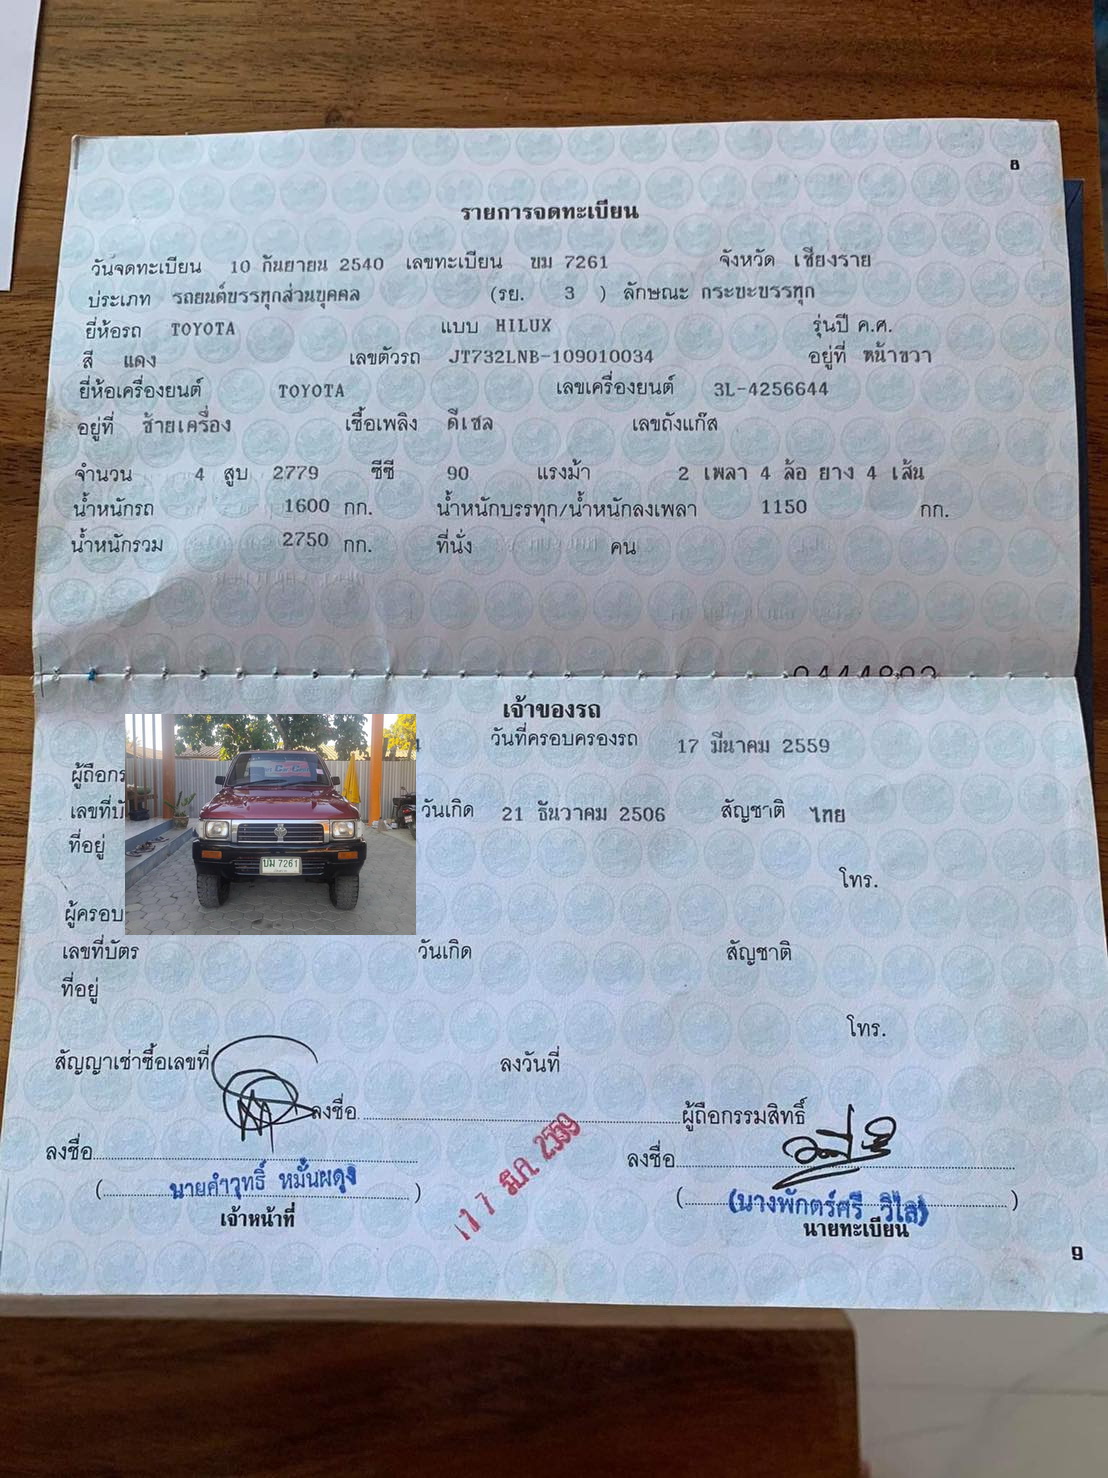 8
รายการจดทะเบียน
วันจดทะเบียน 10 กันยายน 2540 เลขทะเบียน บม 7261 จังหวัด เชียงราย
ประเภท รถยนต์บรรทุกส่วนบุคคล (รย. 3 ) ลักษณะ กระบะบรรทุก
ยี่ห้อรถ TOYOTA แบบ HILUX รุ่นปี ค.ศ.
สี แดง เลขตัวรถ JT732LNB-109010034 อยู่ที่ หน้าขวา
ยี่ห้อเครื่องยนต์ TOYOTA เลขเครื่องยนต์ 3L-4256644
อยู่ที่ ซ้ายเครื่อง เชื้อเพลิง ดีเซล เลขถังแก๊ส
จำนวน 4 สูบ 2779 ซีซี 90 แรงม้า 2 เพลา 4 ล้อ ยาง 4 เส้น
น้ำหนักรถ 1600 กก. น้ำหนักบรรทุก/น้ำหนักลงเพลา 1150 กก.
น้ำหนักรวม 2750 กก. ที่นั่ง คน
เจ้าของรถ
วันที่ครอบครองรถ 17 มีนาคม 2559
ผู้ถือกร
เลขที่บั วันเกิด 21 ธันวาคม 2506 สัญชาติ ไทย
ที่อยู่
บม 7261
โทร.
ผู้ครอบ
เลขที่บัตร วันเกิด สัญชาติ
ที่อยู่
โทร.
สัญญาเช่าซื้อเลขที่ ลงวันที่
ลงชื่อ ผู้ถือกรรมสิทธิ์
ลงชื่อ ลงชื่อ
17 มี.ค. 2559
(นายคำวุทธิ์ หมั้นผดุง) (นางพักตร์ศรี วิไล)
เจ้าหน้าที่ นายทะเบียน
9